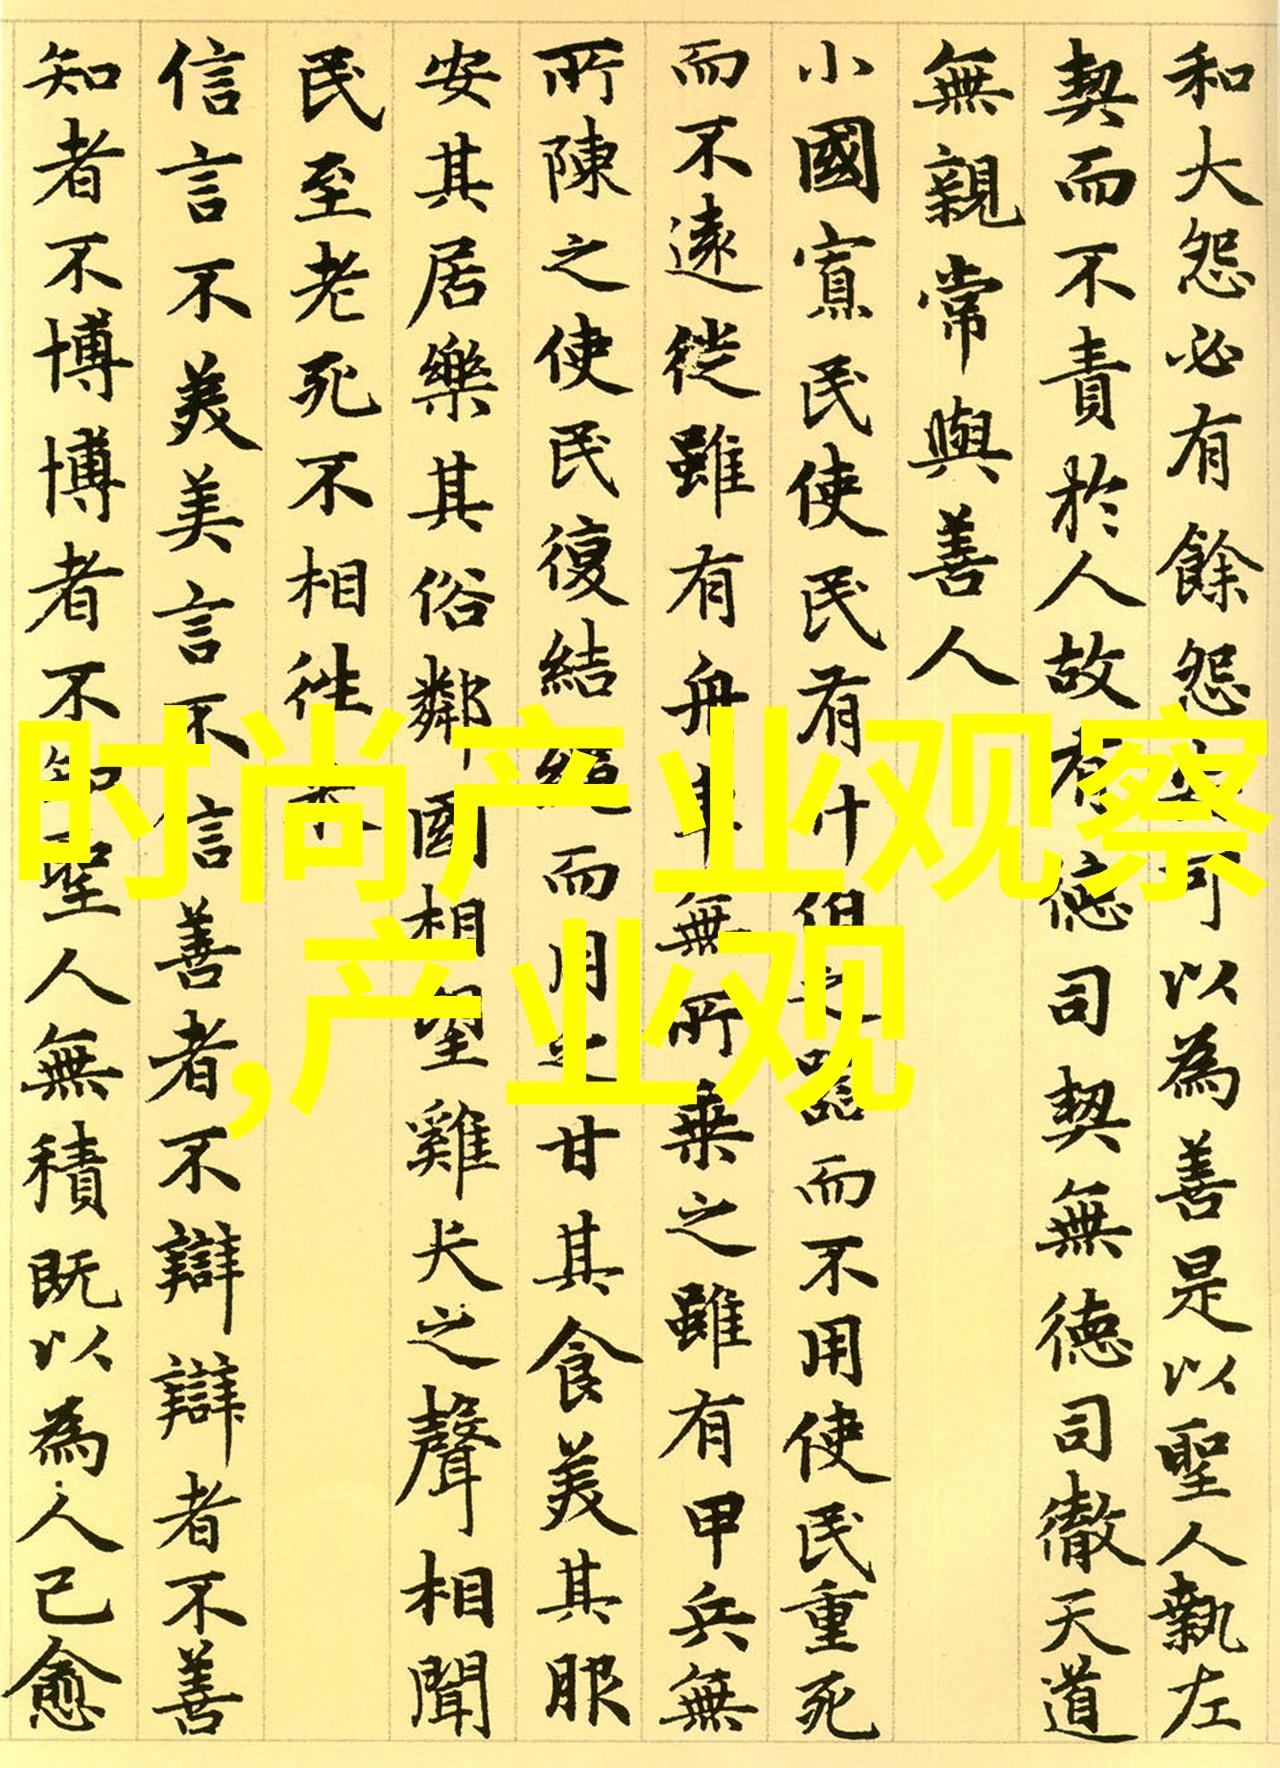 和大怨必有餘怨安可以為善是以聖人執左
契而不責於人故有德司契無德司徹天道
無親常與善人
小國寡民使民有什伯之器而不用使民重死
而不遠徙雖有舟車無所乗之雖有甲兵無
所陳之使民復結繩而用之甘其食美其服
安其居樂其俗鄰國相望雞犬之聲相聞
民至老死不相往来
信言不美美言不信善者不辯辯者不善
知者不博博者不知聖人無積既以為人己愈
时尚产业观察
,产业观